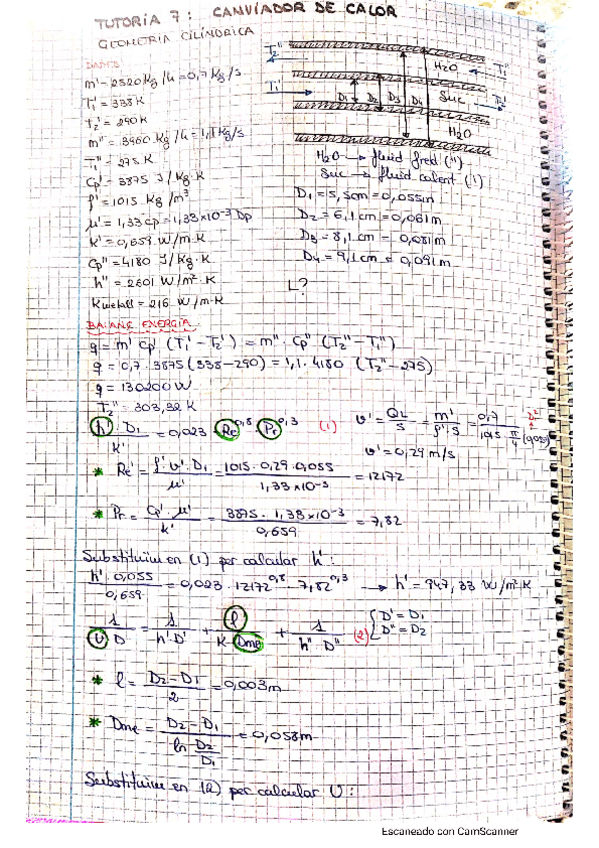 TUTORIA 7: CANVIADOR DE CALOR
GEOMETRIA CILÍNDRICA
DADES
m' = 2520 Kg/h = 0,7 Kg/s
T₁' = 338 K
T₂' = 290 K
m'' = 3960 Kg/h = 1,1 Kg/s
T₁'' = 275 K
Cp' = 3875 J/Kg·K
ρ' = 1015 Kg/m³
μ' = 1,33 cp = 1,33×10⁻³ Dp
K' = 0,659 W/m·K
Cp'' = 4180 J/Kg·K
h'' = 2601 W/m²·K
Kmetall = 216 W/m·K
T₂'' H₂O T₁''
T₁' D₁ D₂ D₃ D₄ Suc T₂'
H₂O
H₂O → fluid fred ('')
Suc → fluid calent (')
D₁ = 5,5cm = 0,055m
D₂ = 6,1 cm = 0,061m
D₃ = 8,1 cm = 0,081m
D₄ = 9,1 cm = 0,091m
L?
BALANÇ ENERGIA
q = m' Cp' (T₁' - T₂') = m'' · Cp'' (T₂'' - T₁'')
q = 0,7 · 3875 (338-290) = 1,1 · 4180 (T₂'' - 275)
q = 130200 W
T₂'' = 303,32 K
h' · D₁ / K' = 0,023 Re^0,8 · Pr^0,3 (1)
v' = QL / S = m' / ρ' · S = 0,7 / 1015 π/4 (0,055)²
v' = 0,29 m/s
* Re' = ρ' · v' · D₁ / μ' = 1015 · 0,29 · 0,055 / 1,33×10⁻³ = 12172
* Pr = Cp' · μ' / K' = 3875 · 1,33×10⁻³ / 0,659 = 7,82
Substituïm en (1) per calcular h':
h' · 0,055 / 0,659 = 0,023 · 12172^0,8 · 7,82^0,3 → h' = 947,33 W/m²K
1 / U D = 1 / h' · D' + l / K · Dme + 1 / h'' · D'' (2) { D' = D₁
D'' = D₂
* l = D₂ - D₁ / 2 = 0,003m
* Dme = D₂ - D₁ / ln D₂/D₁ = 0,058m
Substituïm en (2) per calcular U:
Escaneado con CamScanner